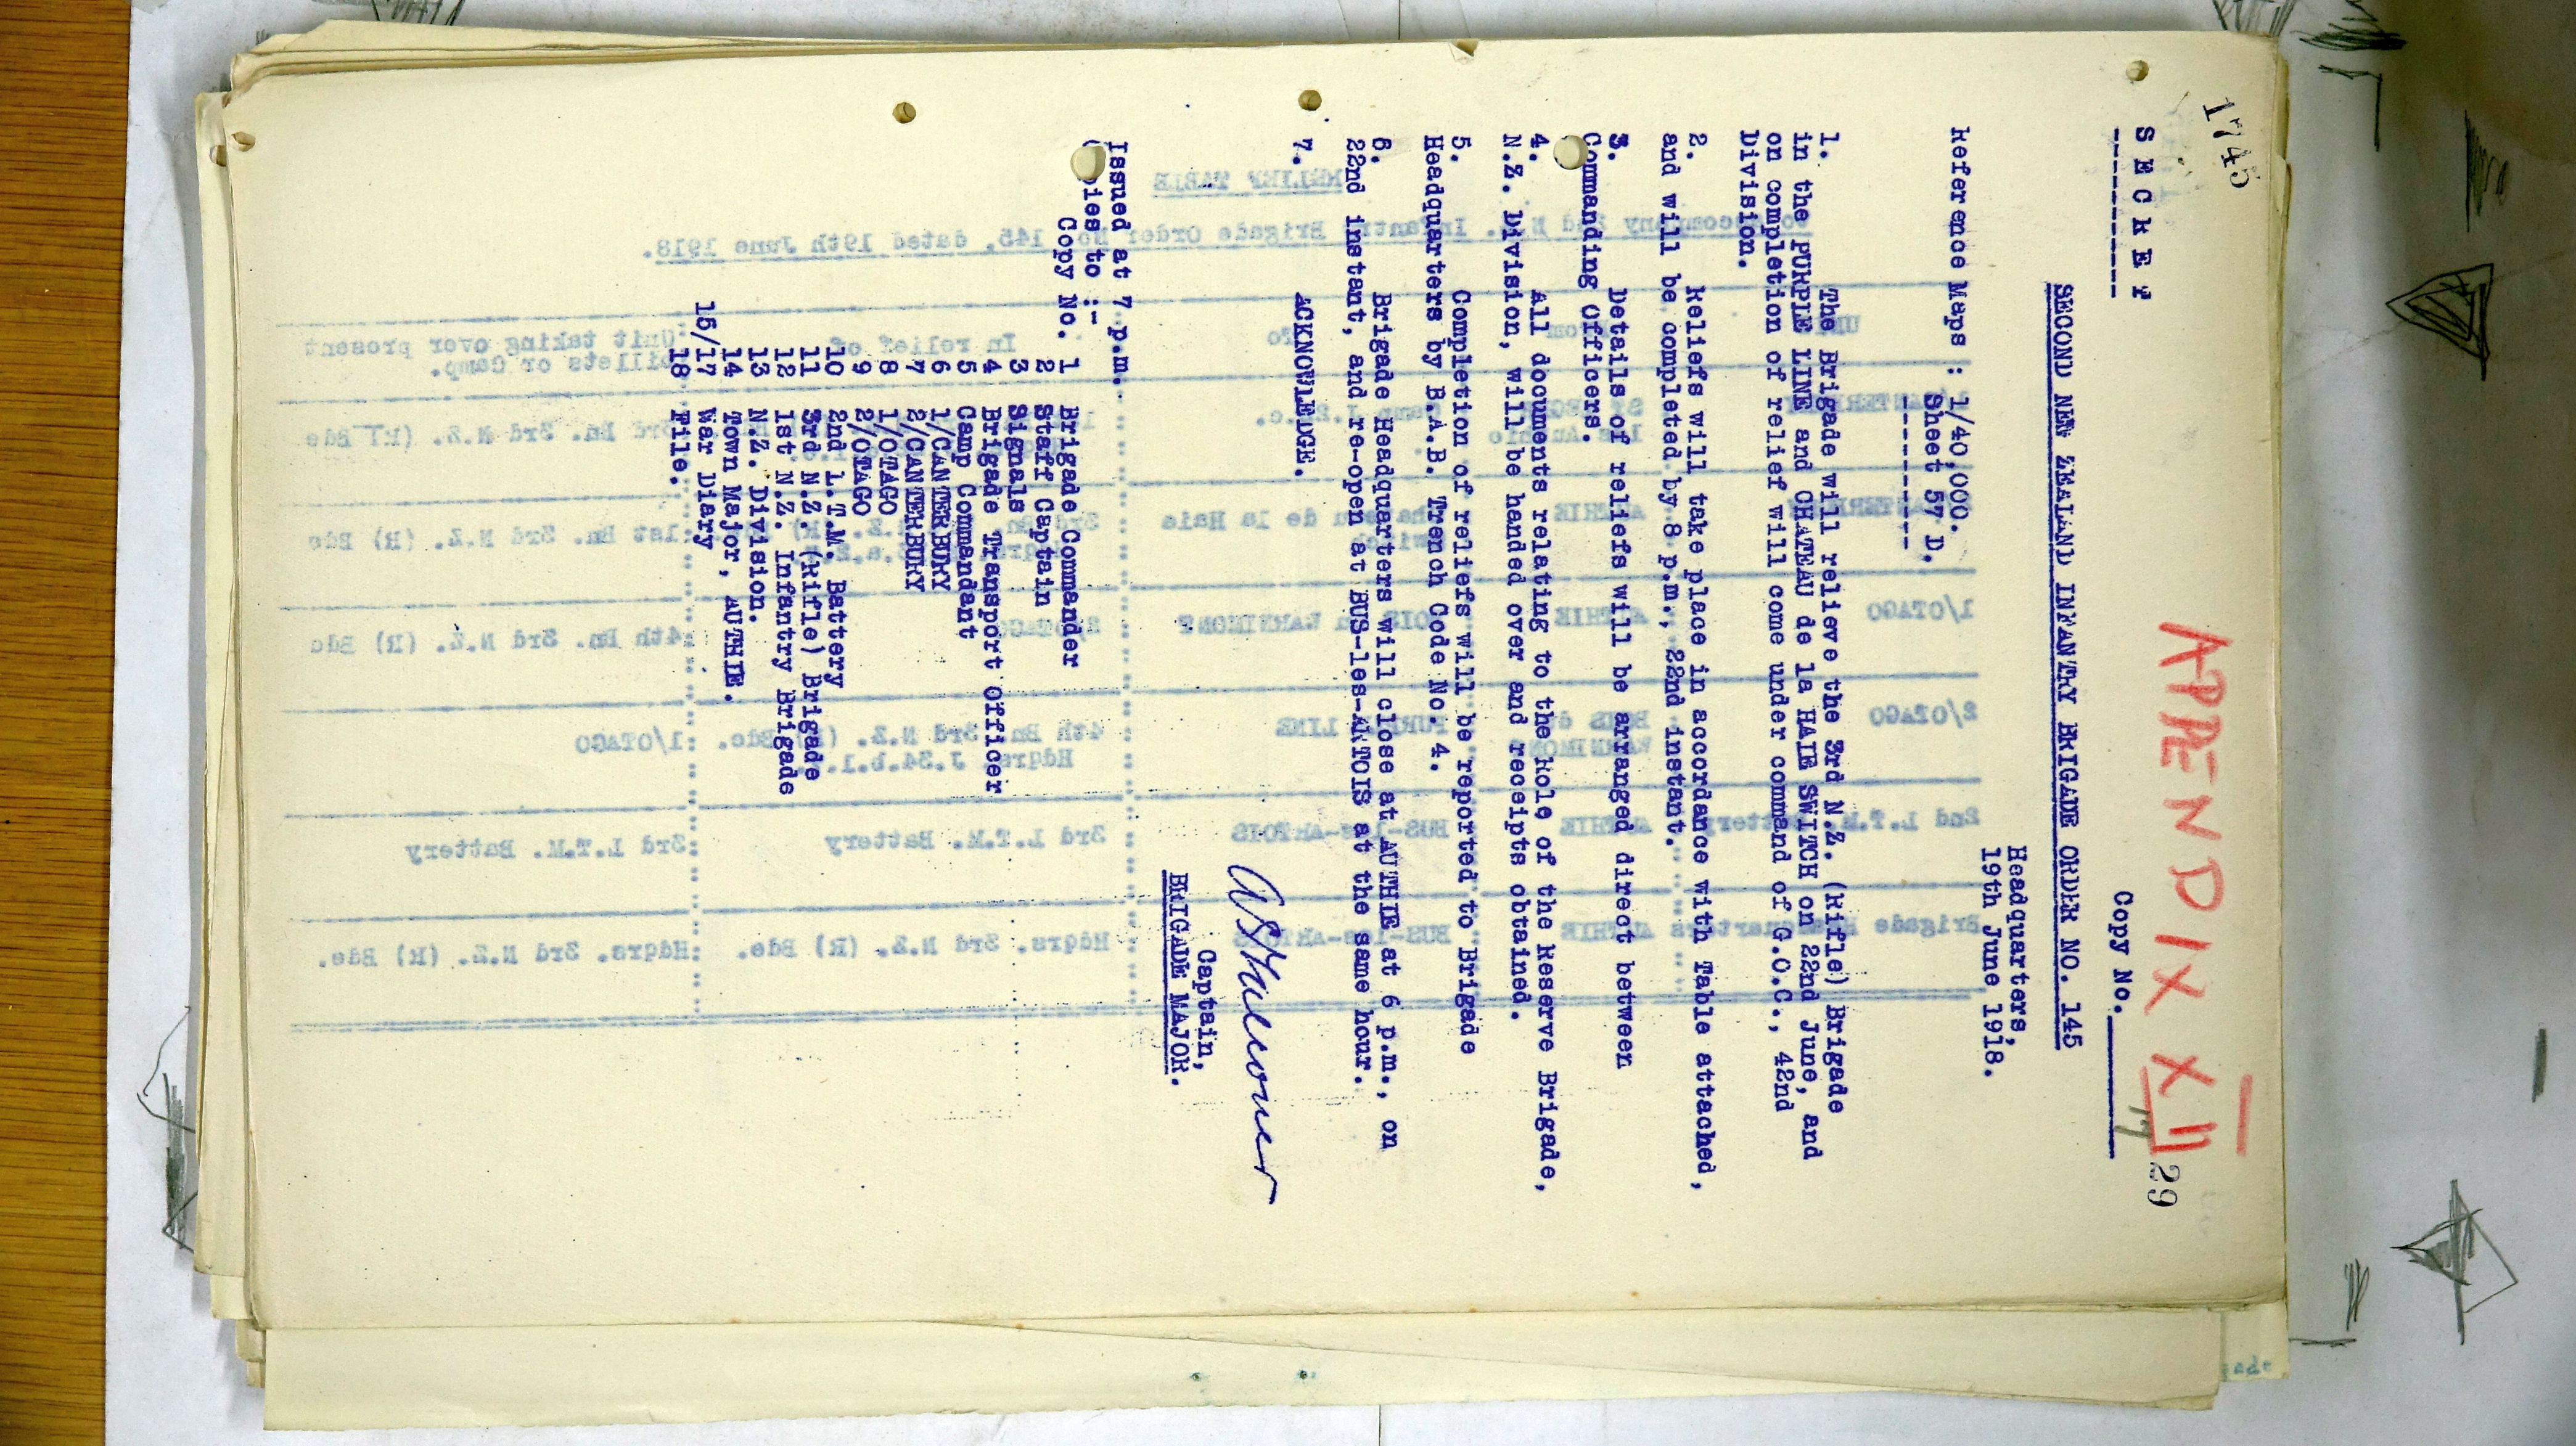 1745
APPENDIX XII
29
SECRET
Copy No. 17
SECOND NEW ZEALAND INFANTRY BRIGADE ORDER NO. 145
Headquarters,
19th June 1918.
Reference Maps : 1/40,000.
Sheet 57 D.
1. The Brigade will relieve the 3rd N.Z. (Rifle) Brigade
in the PURPLE LINE and CHATEAU de la HAIE SWITCH on 22nd June, and
on completion of relief will come under command of G.O.C., 42nd
Division.
2. Reliefs will take place in accordance with Table attached,
and will be completed by 8 p.m., 22nd instant.
3. Details of reliefs will be arranged direct between
Commanding Officers.
4. All documents relating to the role of the Reserve Brigade,
N.Z. Division, will be handed over and receipts obtained.
5. Completion of reliefs will be reported to Brigade
Headquarters by B.A.B. Trench Code No. 4.
6. Brigade Headquarters will close at AUTHIE at 6 p.m., on
22nd instant, and re-open at BUS-les-ARTOIS at the same hour.
7. ACKNOWLEDGE.
Captain,
BRIGADE MAJOR.
Issued at 7 p.m.
(  pies to :-
Copy No. 1 Brigade Commander
2 Staff Captain
3 Signals
4 Brigade Transport Officer
5 Camp Commandant
6 1/CANTERBURY
7 2/CANTERBURY
8 1/OTAGO
9 2/OTAGO
10 2nd L.T.M. Battery
11 3rd N.Z. (Rifle) Brigade
12 1st N.Z. Infantry Brigade
13 N.Z. Division.
14 Town Major, AUTHIE.
15/17 War Diary
18 File.